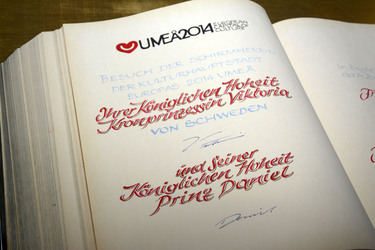 UMEÅ2014 EUROPEAN CAPITAL OF CULTURE
BESUCH DER SCHIRMHERRIN
DER KULTURHAUPTSTADT
EUROPAS 2014 UMEÅ
Ihrer Königlichen Hoheit
Kronprinzessin Viktoria
VON SCHWEDEN
und Seiner
Königlichen Hoheit
Prinz Daniel
Daniel